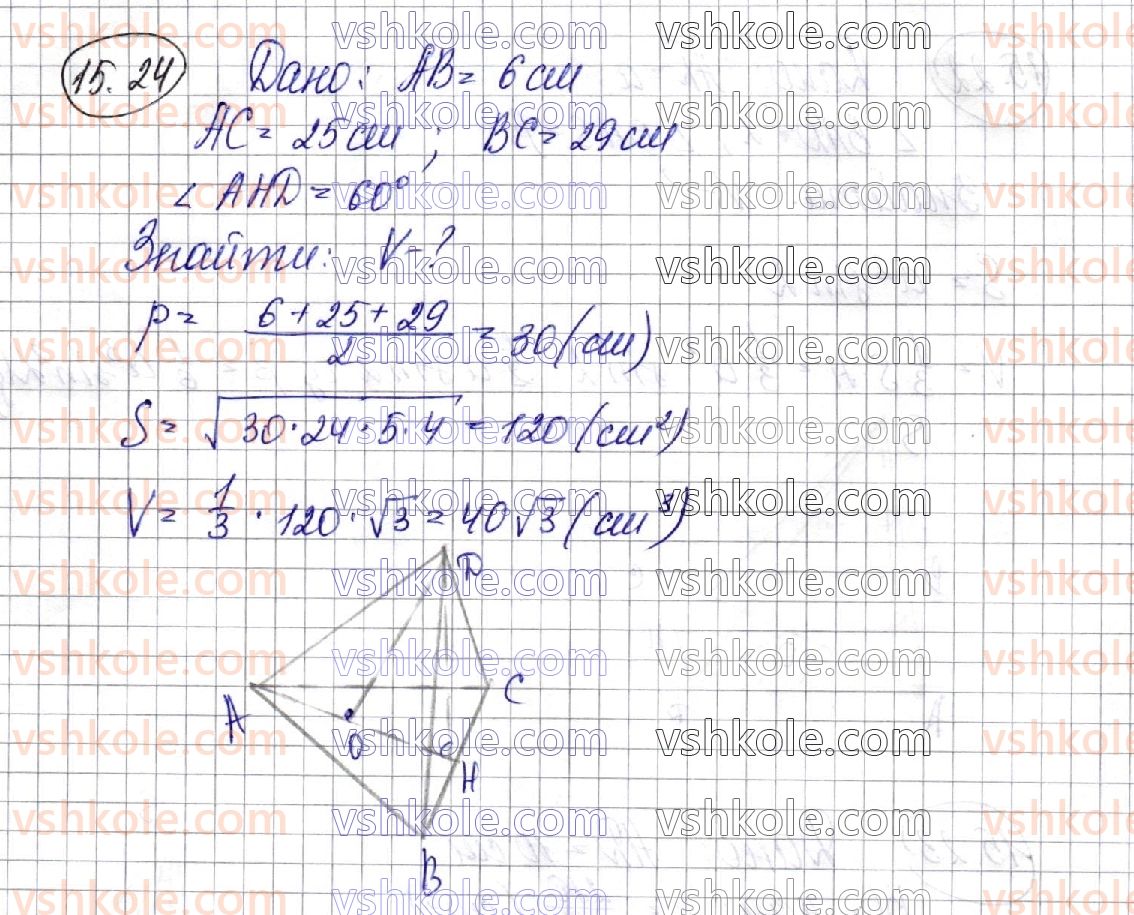 15.24 Дано: AB = 6 см
AC = 25 см ; BC = 29 см
∠ AHD = 60°
Знайти: V - ?
p = (6 + 25 + 29)/2 = 30 (см)
S = √(30·24·5·4) = 120 (см²)
V = 1/3 · 120 · √3 = 40√3 (см³)
D
A
C
O
H
B
vshkole.com